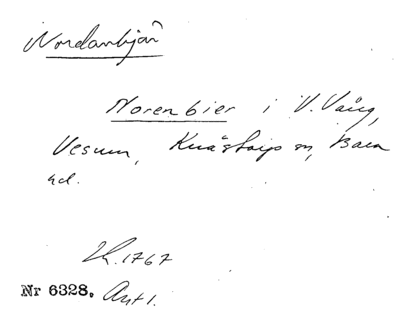 Nordanbjär
Norenbier i V. Vång,
Vesum, Knästorps sn, Bara
hd.
Lh. 1767
Nr 6328. Ant 1.